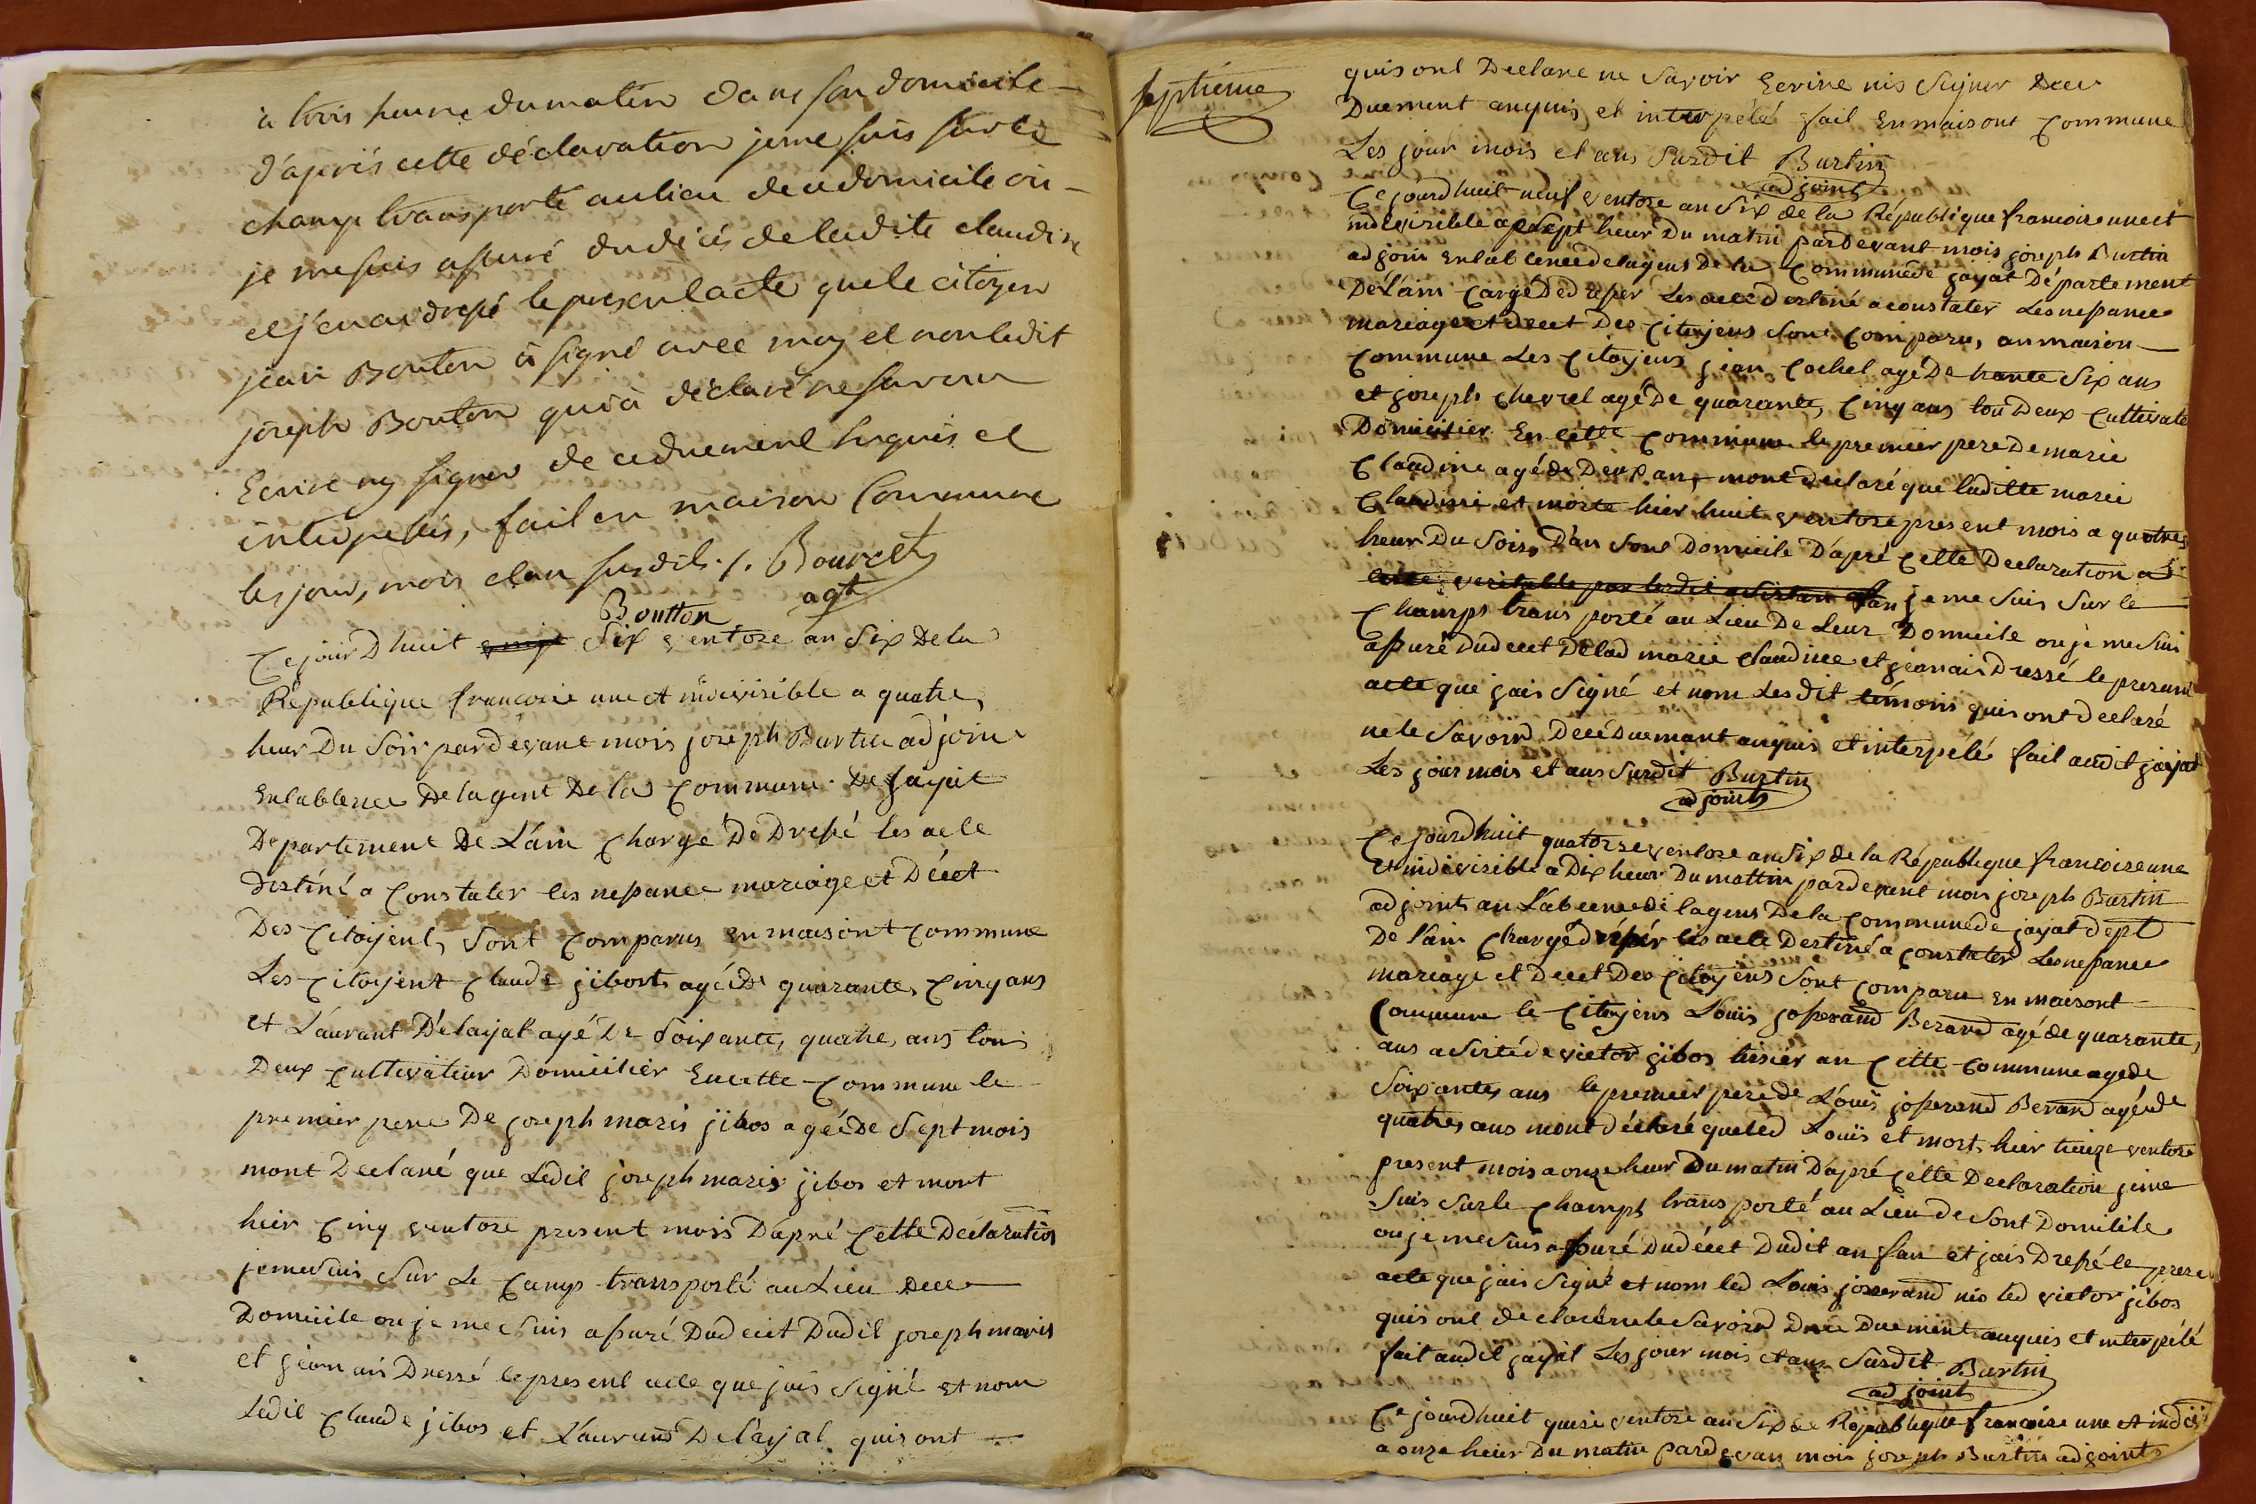 à trois heure du matin dans son domicile
d'aprés cette déclaration je me suis sur le
champ transporté au lieu de ce domicile ou
je me suis assuré du décés de ladite claudine
et j'en ai dressé le present acte que le citoyen
jean Bouton à signé avec moy et non ledit
joseph Bouton qui à déclaré ne savoir
Ecrire ny signer de ce duement Enquis et
interpellés, fait en maison Commune
les jour, mois et an susdits /. Bourcet
Boutton agt
Ce jourDhuit six ventoze an six De la
République francoise une et indevisible a quatre
heur Du Soir pardevant mois joseph Burtin adjoint
En labsence De lagent De la Commune De jayat
Département De L'ain Chargé De Dressé les acte
destiné a Constater les nessance mariage et Décet
Des Citoyent, Sont Comparus En maisont Commune
Les Citoyent Claude jibort agéé De quarante, Cinq ans
et L'aurant Delayat agé De Soixante, quatre, ans tous
Deux Cultivateur Domicilier En cette Commune le
premier pere De joseph maris jibos agéé De Sept mois
mont Declaré que Ledit joseph maris jibos et mort
hier Cinq ventoze present mois D'apré Cette Declaration
je me Suis Sur Le Camps transporté au Lieu Dece
Domicile ou je me Suis assuré Dud ecet Dudit joseph maris
et jean ais Dressé le present acte que jais Signé et nom
Ledit Claude jibos et L'aurand Delayal quis ont
septiéme
quis ont Declare ne Savoir Ecrire nis Seigner Dece
Duement anquis, et interpélé fait En maisont Commune
Les jour mois et ans Susdit Burtin
adjoint
Ce jourdhuit neuf ventoze an Six de la République francoise une et
indevisible a sept heur Du matin pardevant mois joseph Burtin
adjoin En lab cence de lagens De la Commune de jayat Département
De L'ain Cargé De dresser Les acte destiné a constater Les nessance
mariage et decet Des Citoyens Sont Comparu, an maison
Commune Les Citoyens jean Cochet agé De trante Six ans
et joseph Chevrel agé De quarante, Cinq ans tou Deux Cultivate
Domicilier En cette Commune le premier pere De marie
Claudine agéé De Deux ans, mont declaré que laditte marie
Claudine et morte hier huit ventoze present mois a quatres
heur Du Soirs D'an Sont Domicile D'apré Cette Declaration
je me Suis Sur le
Champs trans porté au Lieu De Leur Domicile ou je me Suis
assuré dud ecet De lad marie claudine et jean ais Dressé le present
acte que jais Signé et nom Les dit témoin quis ont declaré
ne le Savoird Dece Duemant anquis et interpélé fait audit jayat
Les jour mois et ans Susdit Burtin
adjoint
Ce jourdhuit quatorze ventose an Six de la République francoise une
Et indevisible a Dix heur Du mattin pardevant mois joseph Burtin
adjoint an L'abcence de lagens De la Commune de jayat dept
De l'ain Chargé dréssér les acte Destiné a constater Les nessance
mariage et Decet Des Citoyens Sont Comparu en maisont
Commune le Citoyens Louis josserand Berard agé de quarante,
ans asisté de victor jibos tisier an Cette Commune agé de
Soixantes ans le premier pere de Louis josserand Berard agéé de
quatres ans mont déclaré que led Louis et mort hier treize ventoze
present mois a onze heur Du matin D'apré Cette Declaration je me
Suis Sur le Champs trans porté au Lieu de Sont Domicile
ou je me Suis assuré Dudécet Dudit anfan et jais Dressé le prese
acte que jais Signé et nom led Louis josserand nis led victor jibos
quis ont declaré ne le Savoird Dece Duemint anquis et interpélé
fait audit jayat Les jour mois et ans Susdit Burtin
adjoint
Ce jourdhuit quise ventoze an Six De Republique francoise une et indevi
a onze heur Du matin pardevan mois joseph Burtin adjoints